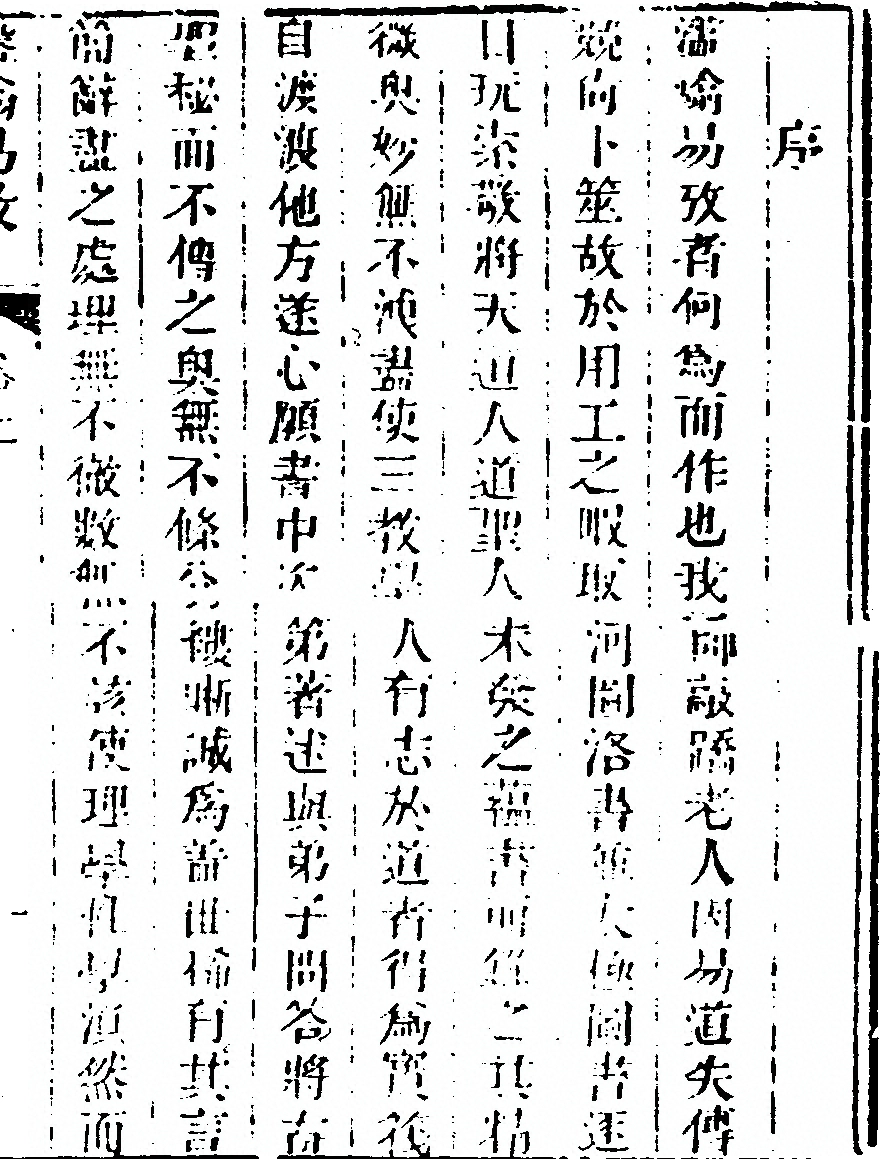 序
喻易攷者何為而作也我師敲蹻老人因易道失傳
競向卜筮故於用工之暇取河圖洛書並太極圖書逐
日玩索敬將天道人道聖人未發之蘊書之其精
微奧妙無不洩盡使三教學人有志於道者得為寶筏
自渡渡他方遂心願書中次第著述與弟子問答將古
聖秘而不傳之奧無不條分縷晰誠為世稀有其言
簡辭盡之處理無不徹數無不該使理學性學渙然而
喻易攷 卷上 一